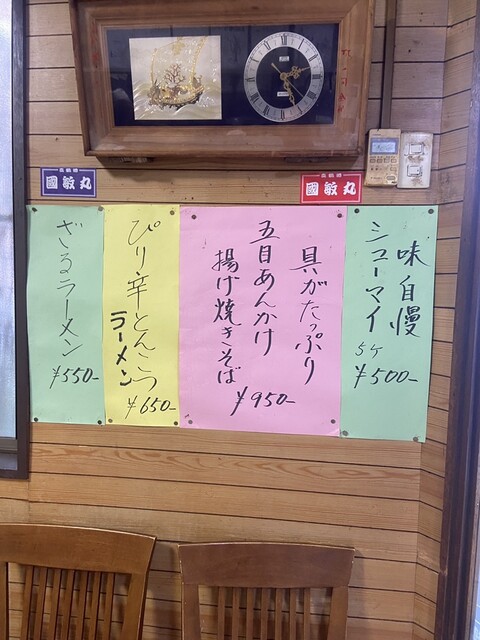 國敏丸
國敏丸
味自慢
シューマイ
5ケ
¥500-
具がたっぷり
五目あんかけ
揚げ焼きそば
¥950-
ぴり辛とんこつ
ラーメン
¥650-
ざるラーメン
¥550-